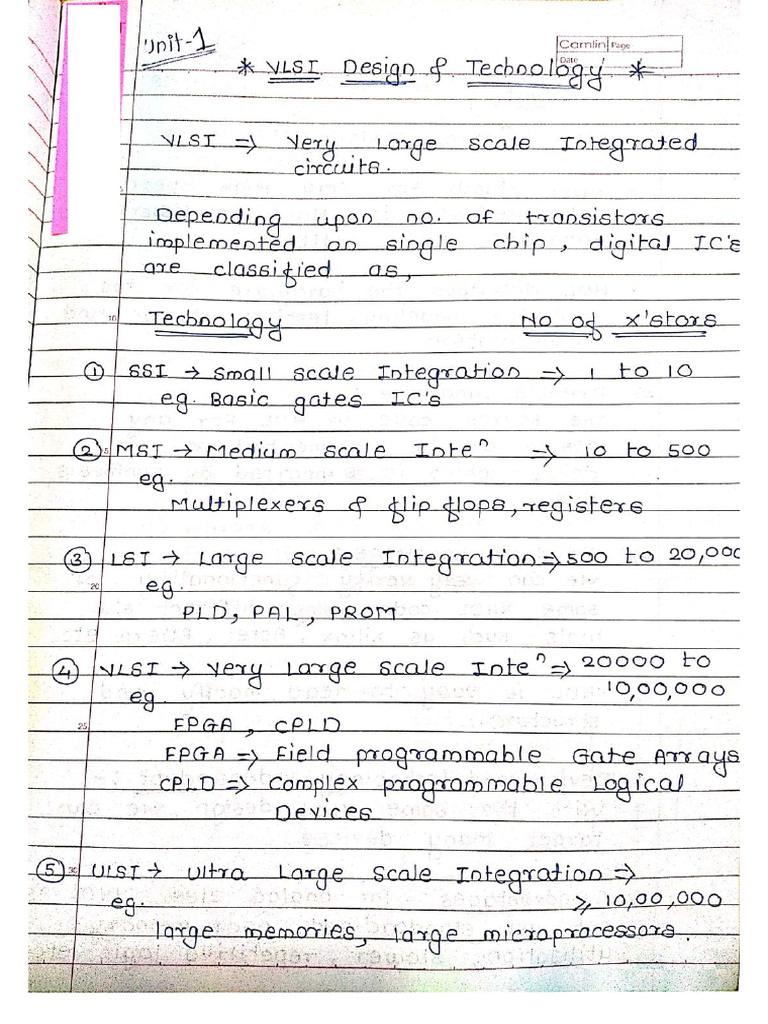 Unit-1
Camlin Page
Date
* VLSI Design & Technology *
VLSI => Very Large Scale Integrated
circuits.
Depending upon no. of transistors
implemented on single chip, digital IC's
are classified as,
10 Technology No of x'stors
① SSI → Small scale Integration => 1 to 10
eg. Basic gates IC's
② MSI → Medium Scale Inteⁿ => 10 to 500
eg.
Multiplexers & flip flops, registers
③ LSI → Large Scale Integration => 500 to 20,000
20 eg.
PLD, PAL, PROM
④ VLSI → Very Large Scale Inteⁿ => 20000 to
eg. 10,00,000
25 FPGA, CPLD
FPGA => Field programmable Gate Arrays
CPLD => Complex programmable Logical
Devices
⑤ 30 ULSI → Ultra Large Scale Integration =>
eg. ⩾ 10,00,000
large memories, large microprocessors.